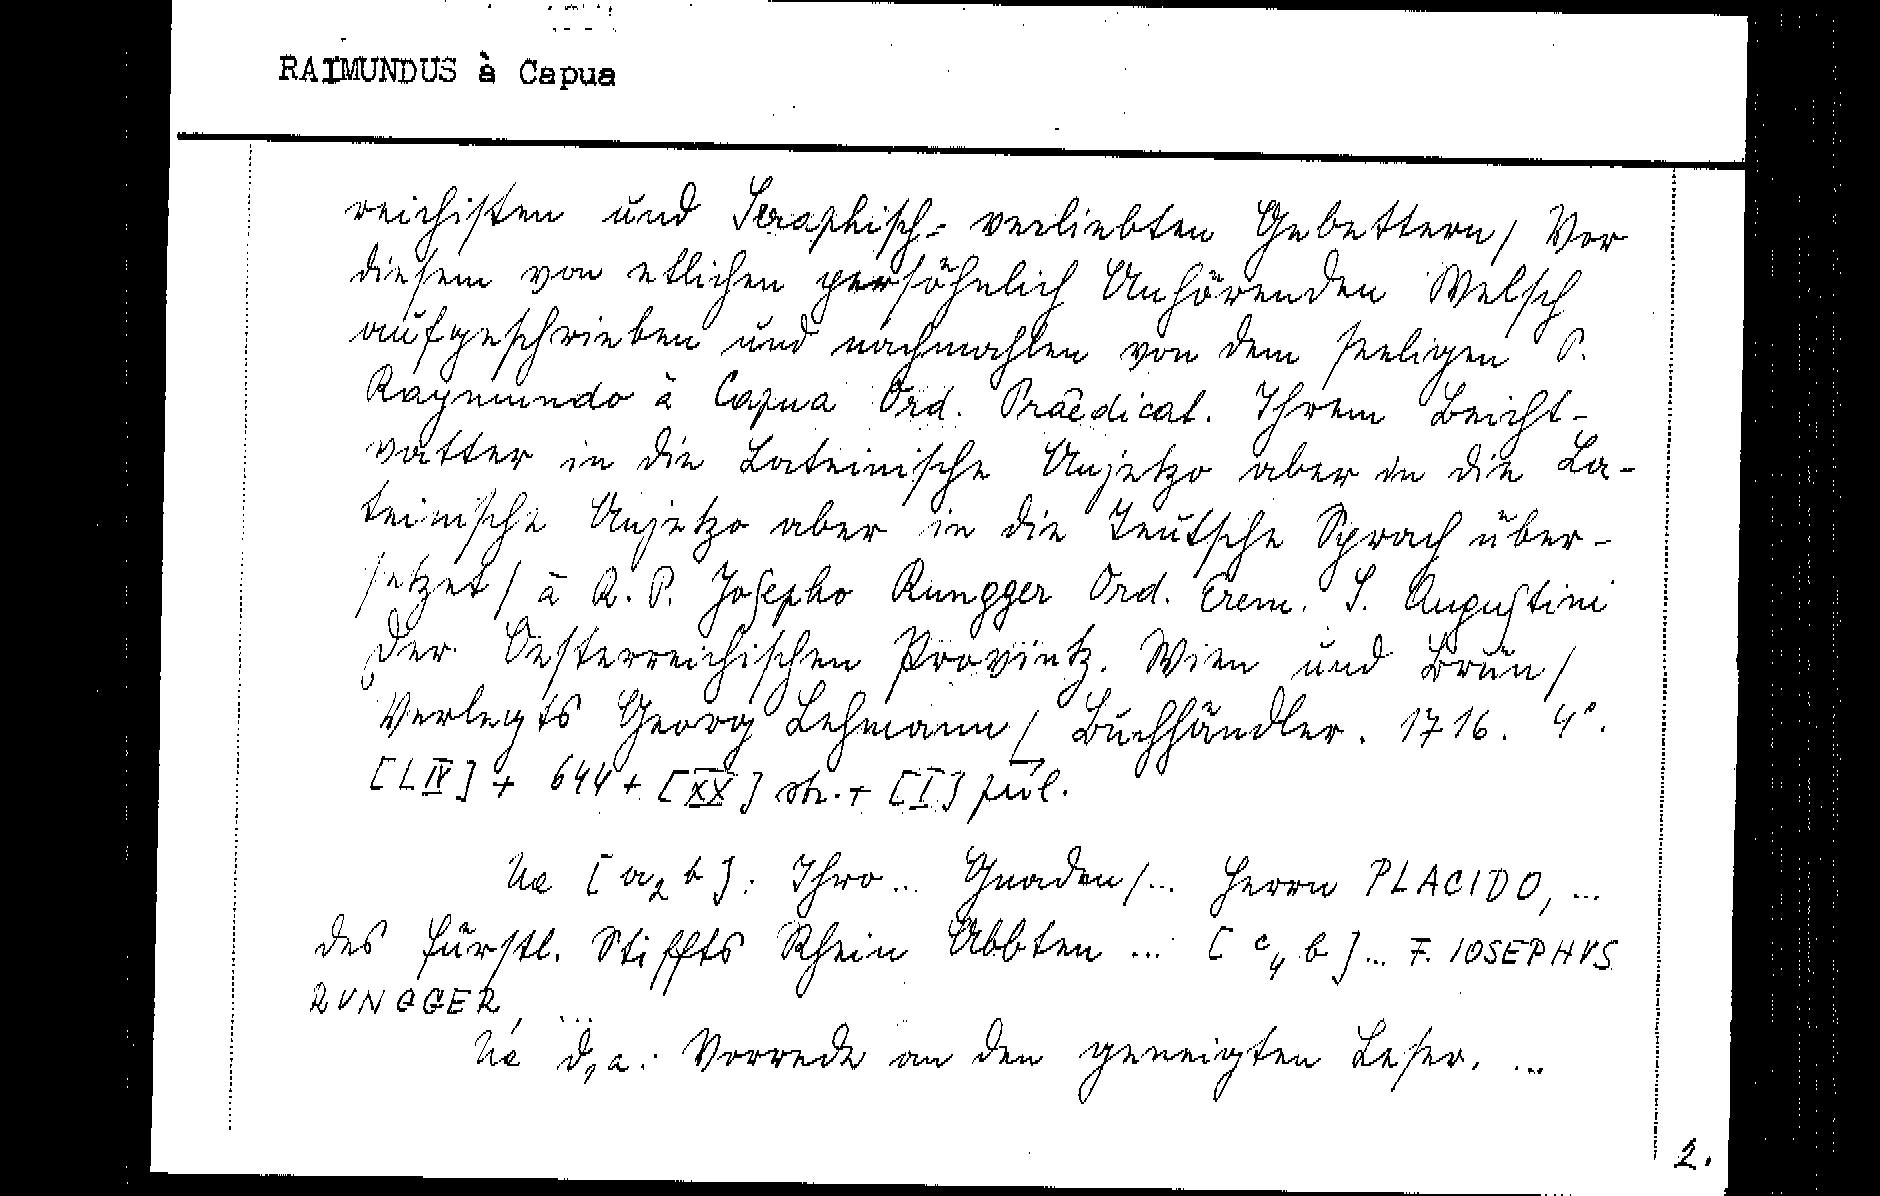 RAIMUNDUS à Capua
reichisten und Seraphisch-verliebten Gebettern/ Vor
diesem von etlichen persöhnlich Anhörenden Welsch
aufgeschrieben und nachmahlen von dem seeligen P.
Raymundo à Capua Ord. Praedicat. Ihrem Beicht-
vatter in die Lateinische Anjetzo aber in die La-
teinische Anjetzo aber in die Teutsche Sprach über-
setzet/ à R. P. Josepho Rungger Ord. Erem. S. Augustini
Der Oesterreichischen Provintz. Wien und Brün/
Verlegts Georg Lehmann/ Buchhändler. 1716. 4°.
[LIV] + 644 + [XX] str. + [I] příl.
Na [a2b]: Ihro... Gnaden/... Herrn PLACIDO, ...
des fürstl. Stiffts Rhein Abbten ... [c4b]... F. IOSEPHVS
RVNGGER, ...
Na d,a: Vorrede an den geneigten Leser. ...
2.